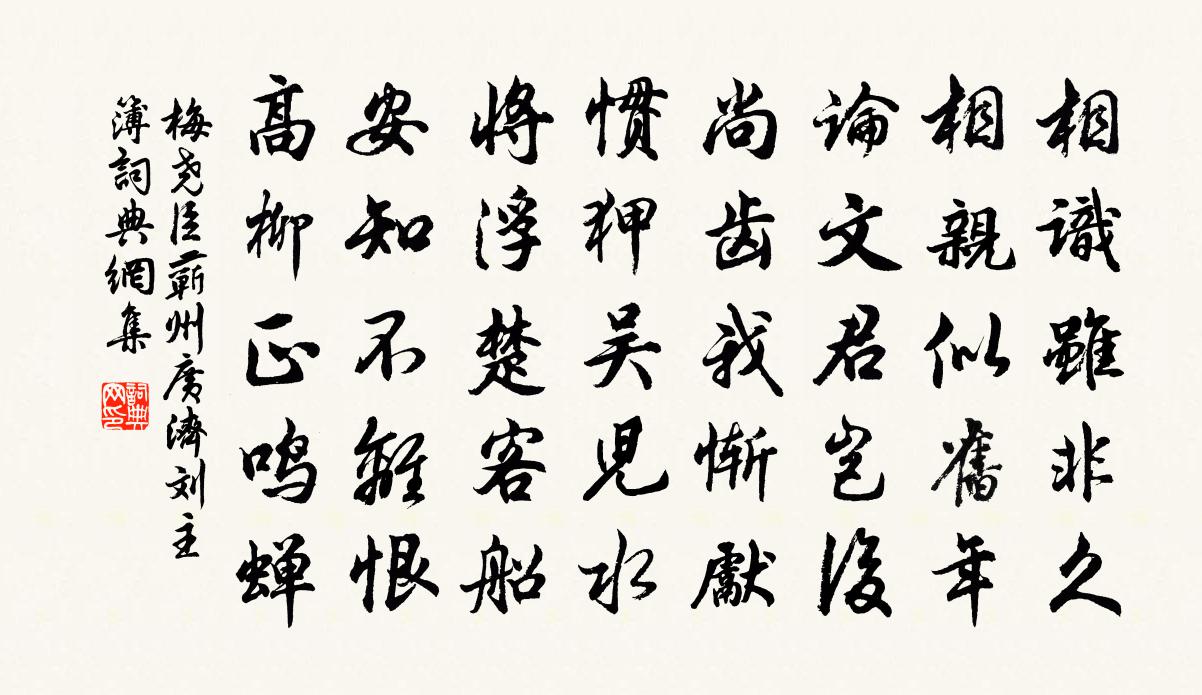 相識雖非久
相親似舊年
論文君豈後
尚齿我慚獻
慣狎吴児水
将浮楚客船
安知不離恨
高柳正鸣蝉
梅尧臣蘄州廣濟刘主
簿詞典網集
詞典网印